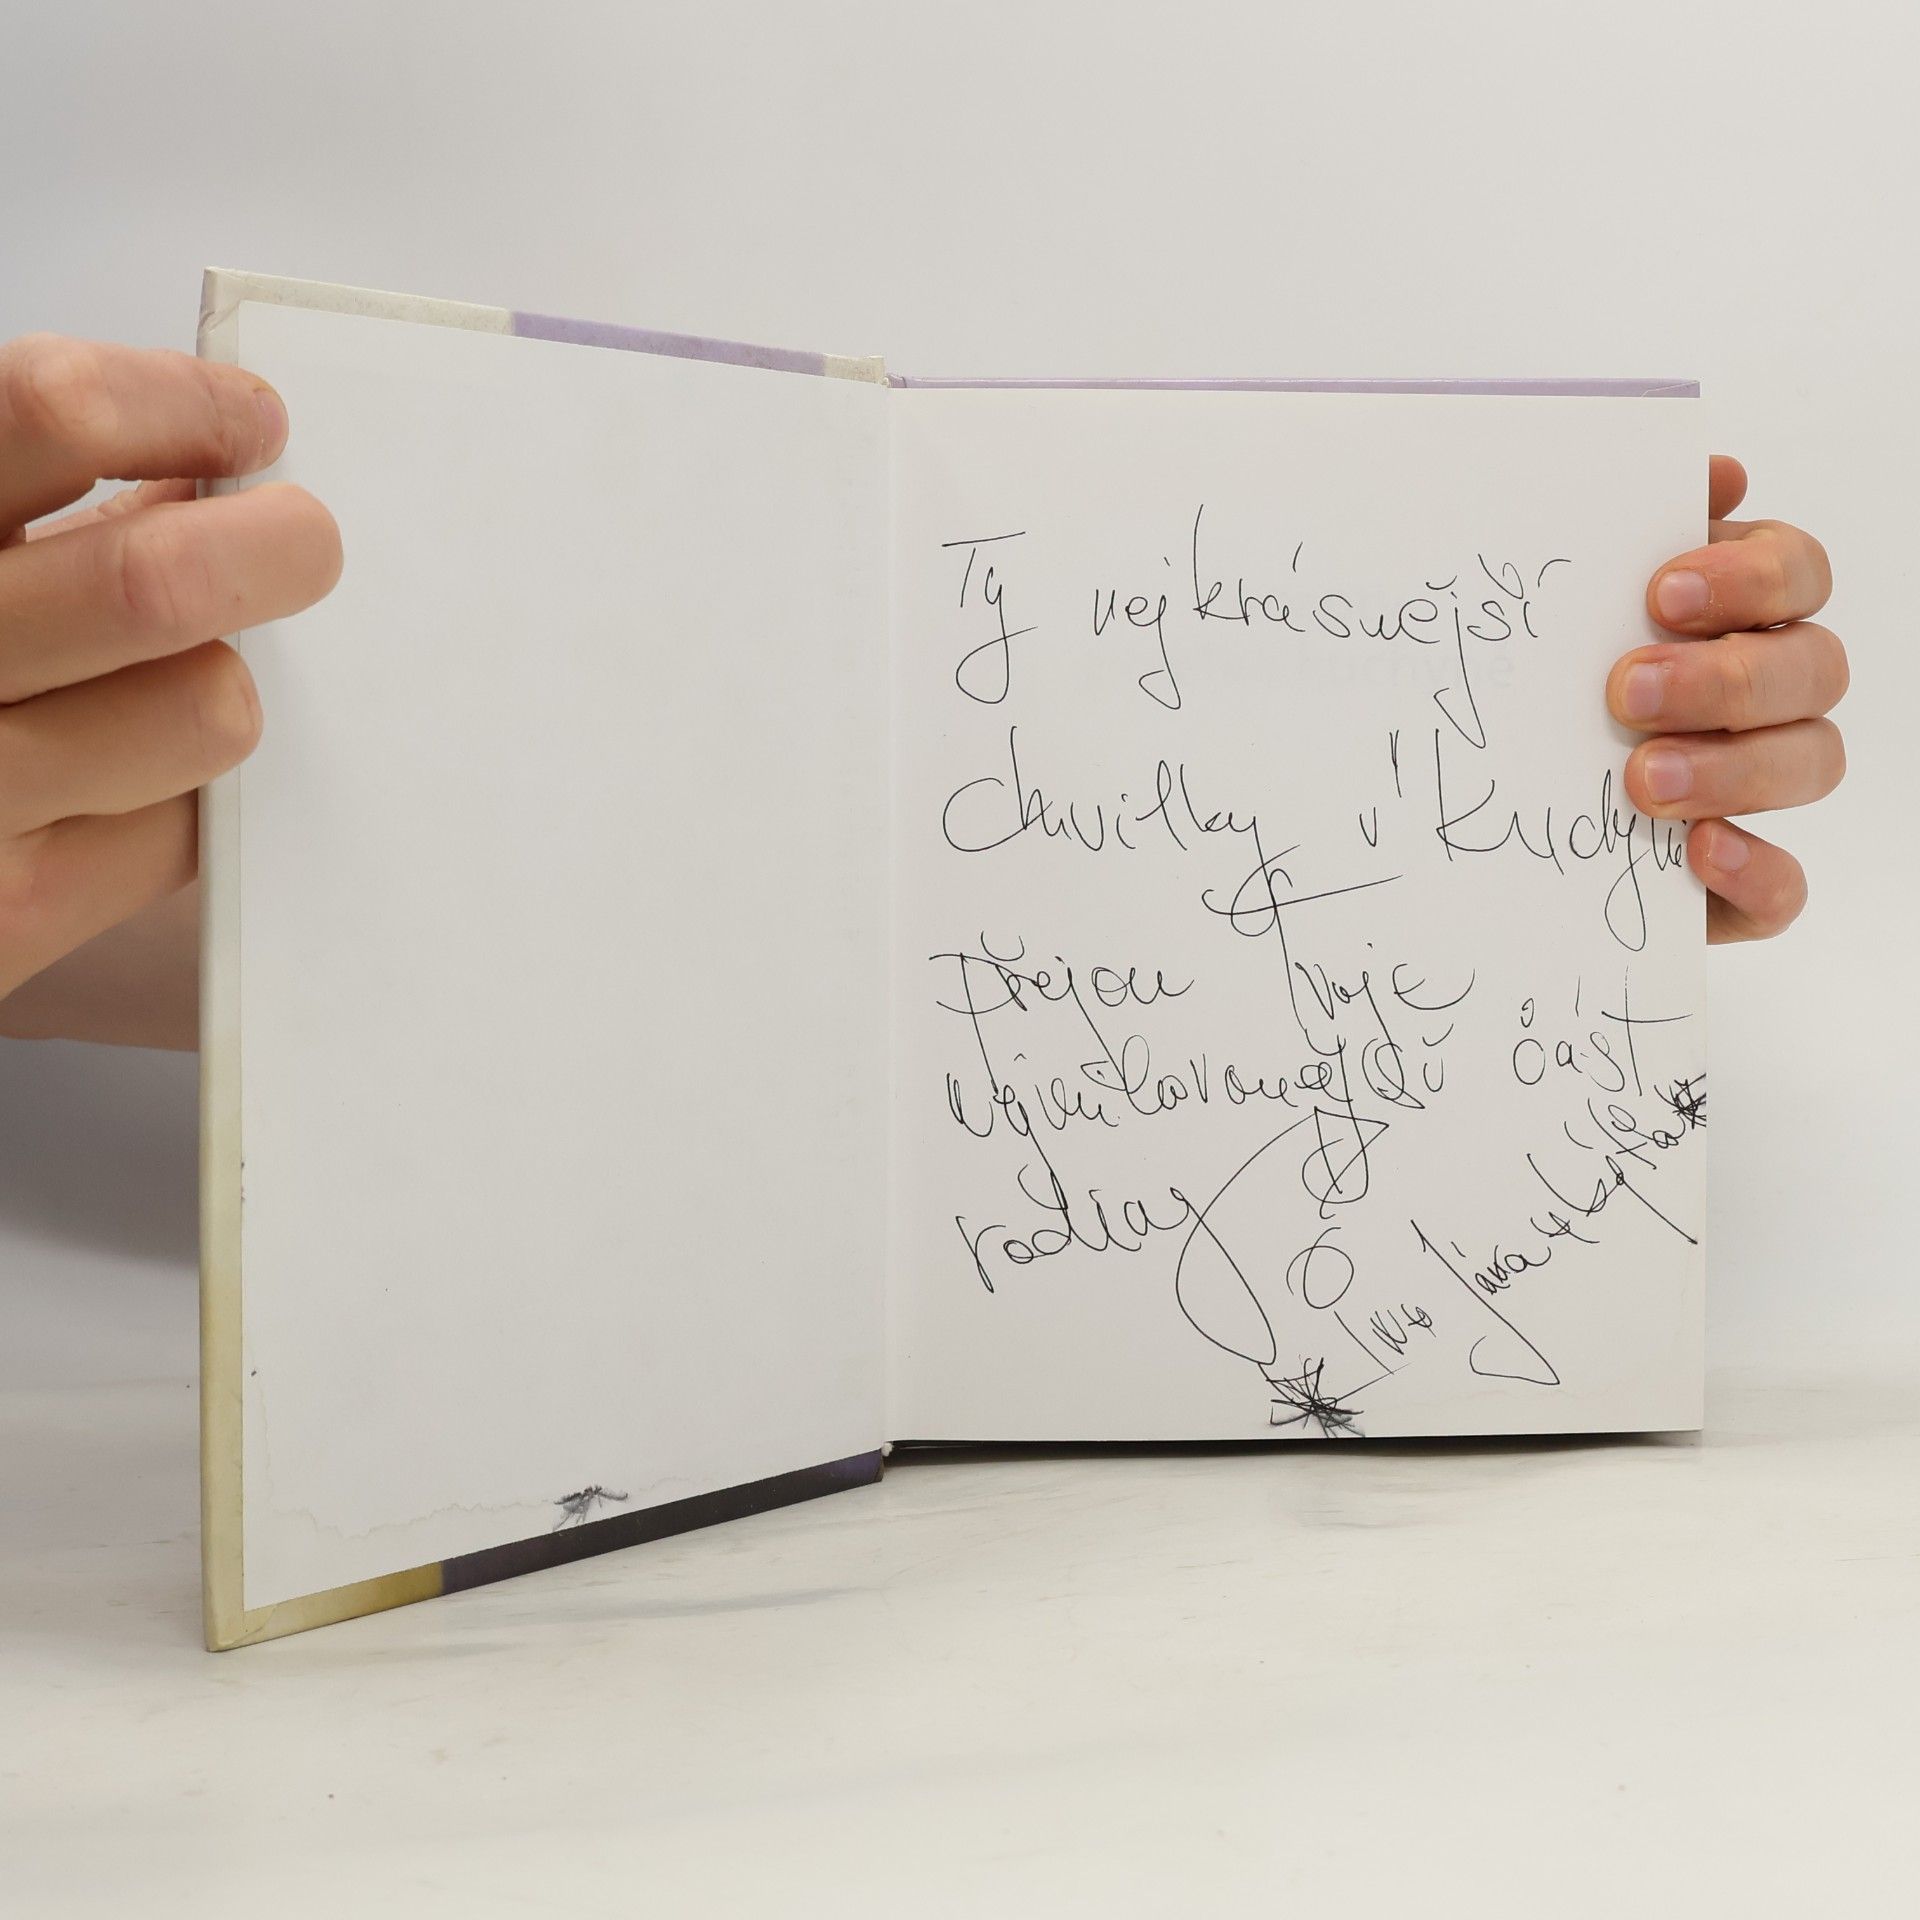 Ty nejkrásnější
chvilky v Kuchyni
Přejou Tvoje
nejmilovanější část
rodiny
Jára +